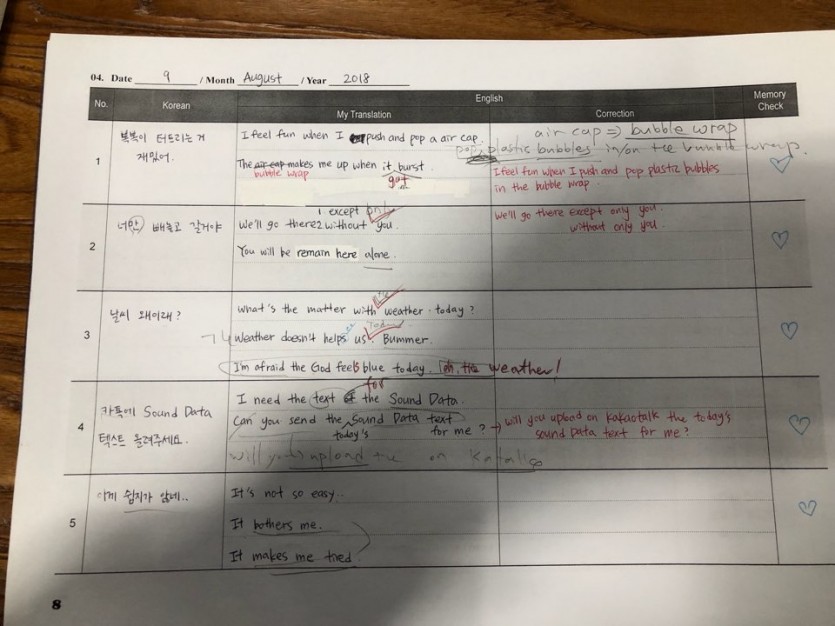 04. Date 9 / Month August / Year 2018
No. Korean English Memory Check
My Translation Correction
1
뽁뽁이 터트리는 거
재밌어.
I feel fun when I push and pop a air cap.
The air cap makes me up when it burst
bubble wrap
got
air cap => bubble wrap
pop plastic bubbles in/on the bubble wrap.
I feel fun when I push and pop plastic bubbles
in the bubble wrap
2
너만 빼놓고 갈거야
1. except only
We'll go there 2 without you.
You will be remain here alone.
We'll go there except only you.
without only you.
3
날씨 왜이래?
the
What's the matter with weather today?
Weather doesn't helps us Bummer.
I'm afraid the God feels blue today. eh, the weather!
4
카톡에 Sound Data
텍스트 올려주세요.
for
I need the text of the Sound Data.
Can you send the Sound Data text
today's for me?
will you upload the on katalk
→ will you upload on kakaotalk the today's
sound data text for me?
5
이게 쉽지가 않네..
It's not so easy.
It bothers me.
It makes me tired.
8